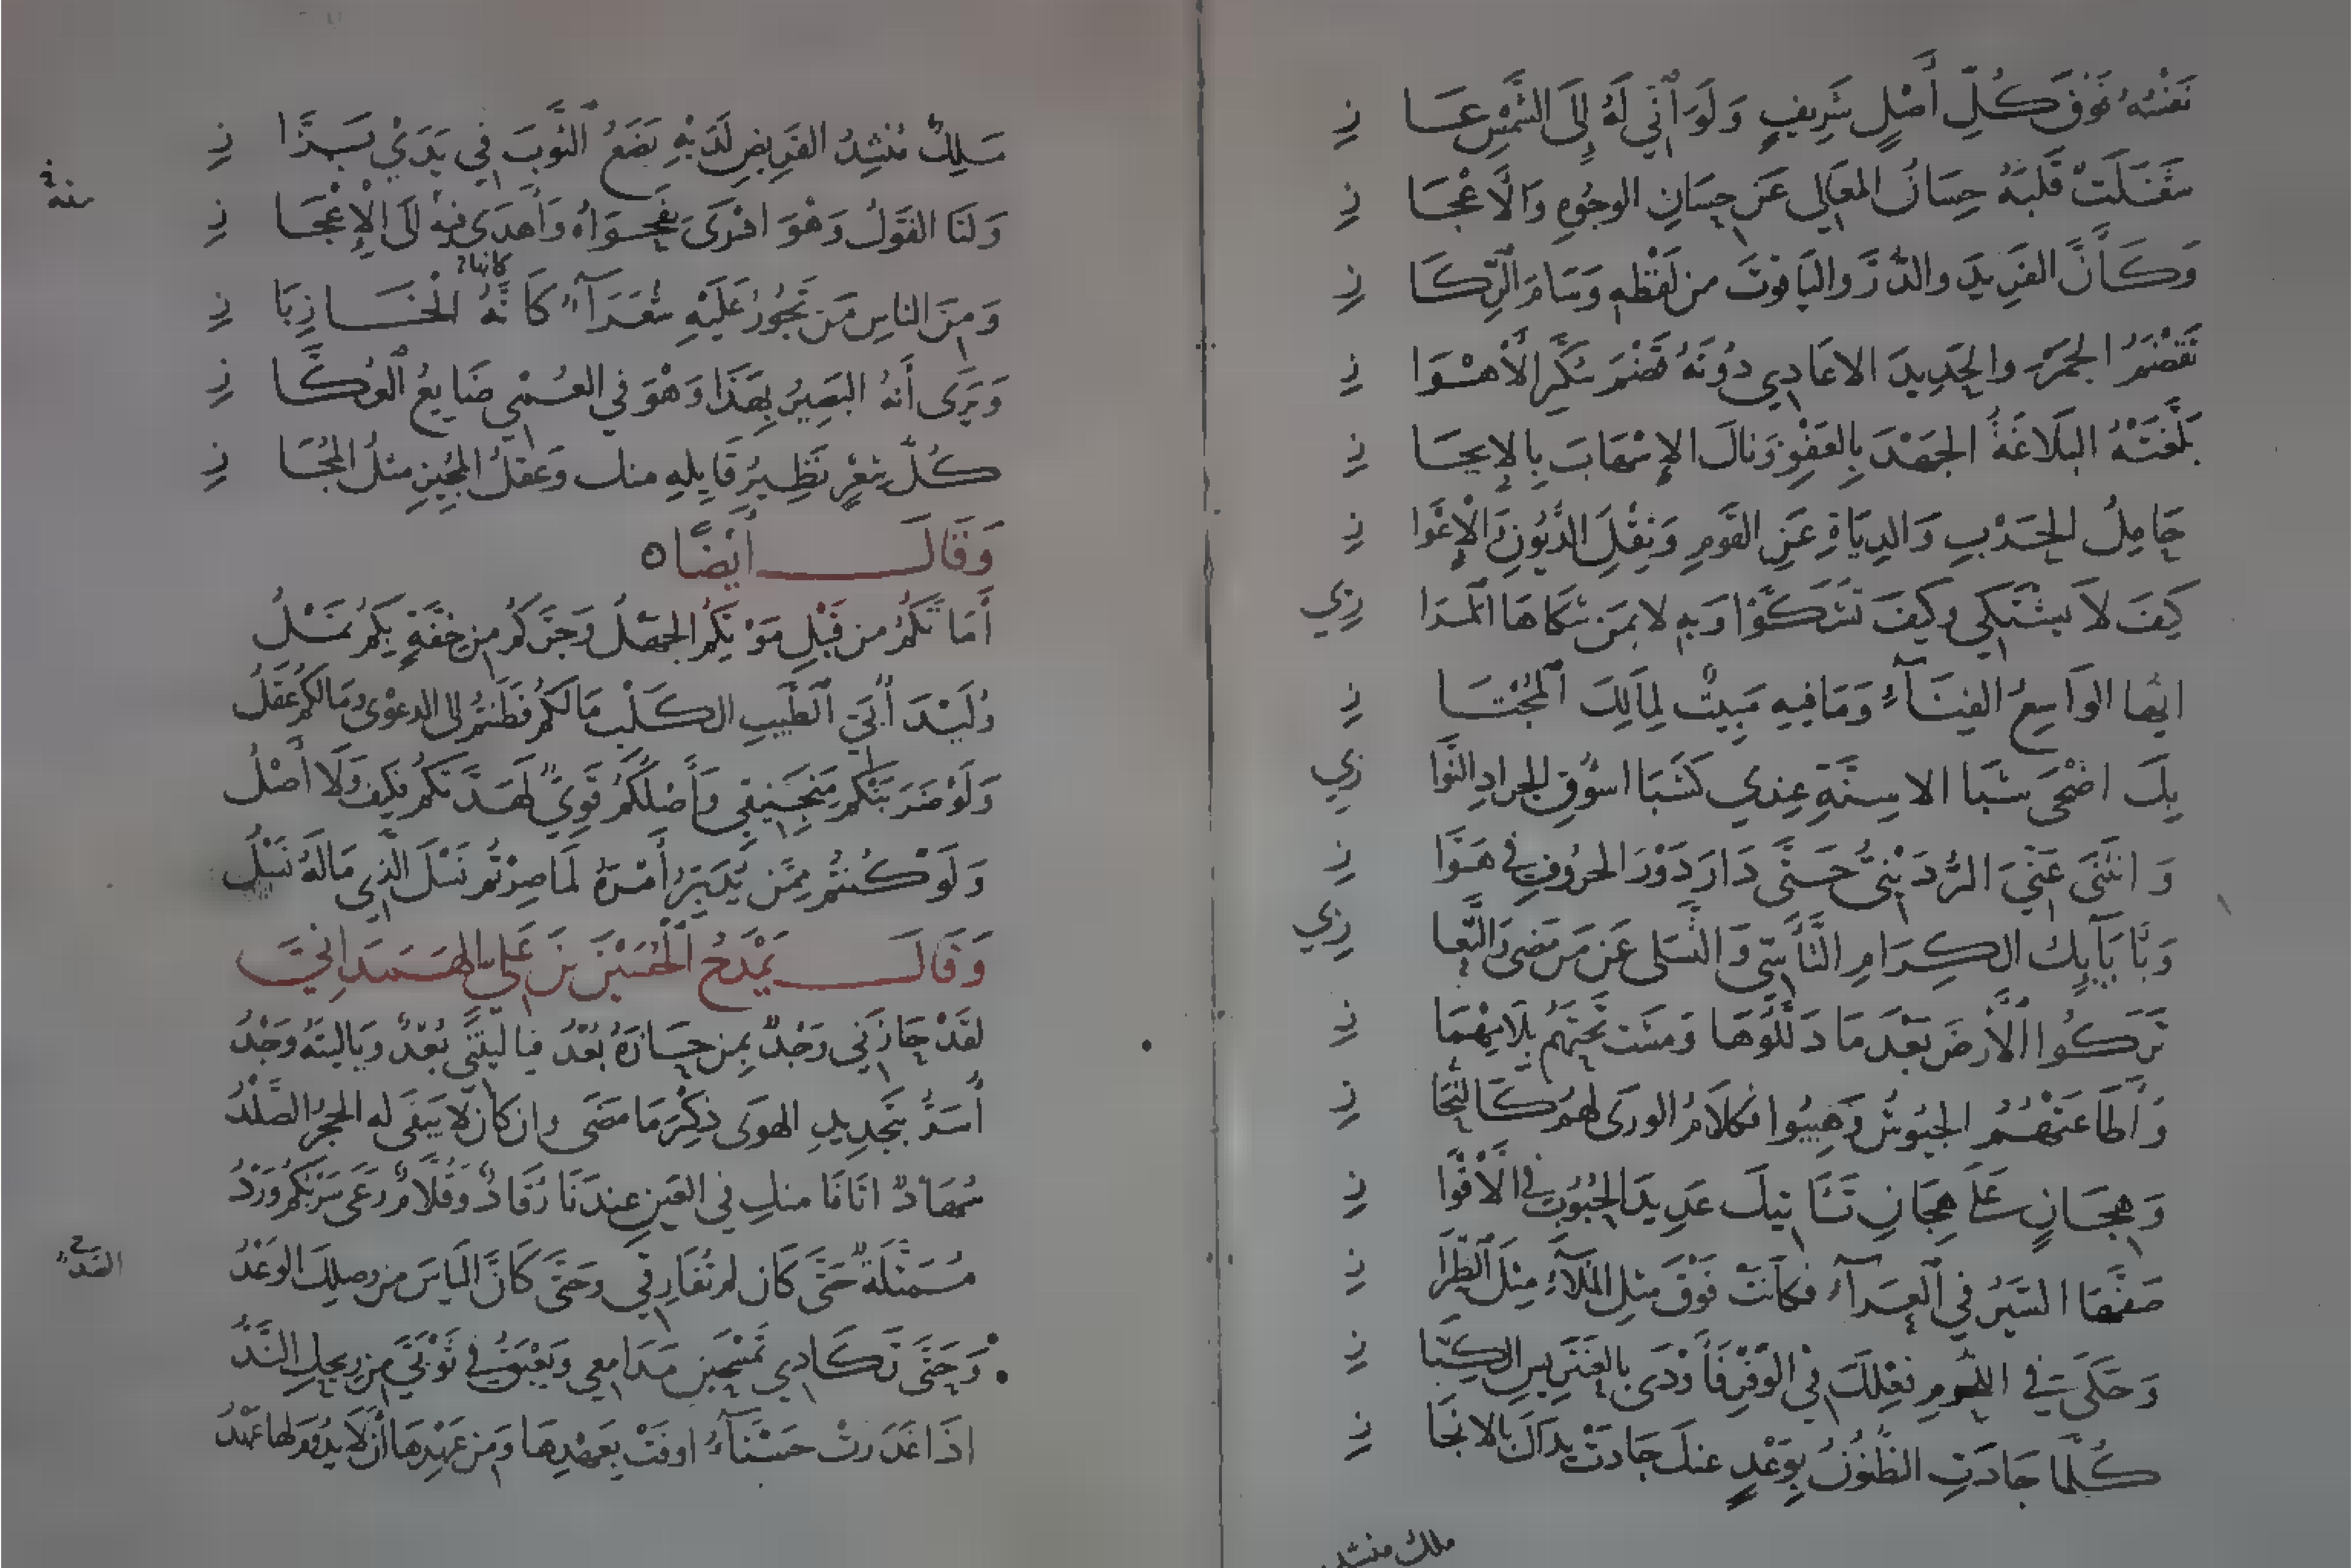 نَفْسُهُ فَوْقَ كُلِّ أَصْلٍ شَرِيفٍ وَلَوَ أَنِّي لَهُ إِلَى الشَّمْسِ عَا زِ
شَغَلَتْ قَلْبَهُ حِسَانُ المَعَالِي عَنْ حِسَانِ الوُجُوهِ وَالأَعْجَا زِ
وَكَأَنَّ الفَرِيدَ والدُّرَّ واليَاقُوتَ مِن لَفْظِهِ وَسَامَ الرِّكَا زِ
تَقْضَمُ الجَمْرَ والحَدِيدَ الاعَادِي دُونَهُ قَضْمَ سُكَّرِ الأَهْوَا زِ
بَلَّغَتْهُ البَلَاغَةُ الجَهْدَ بِالعَفْوِ وَنَالَ الإِسْهَابَ بِالإِيجَا زِ
حَامِلُ الحَرْبِ وَالدِيَاةِ عَنِ القَوْمِ وَثِقْلِ الدُّيُونِ وَالإِعْوَا زِ
كَيفَ لَا يشْتَكِي وكَيفَ تَشَكَّوْا وَبِهِ لا بمَن شَكَاهَا المَرَا زِي
ايها الوَاسِعُ الفِنَآءُ وَمَا فِيهِ مَبِيتٌ لِمَالِكَ المُجْتَا زِ
بِكَ اضْحَى شَبَا الاسِنَّةِ عِندي كَشَبَا اسْوُقِ الجرادِ النَّوَا زِي
وَانثَنَى عَنِّيَ الرُّدَيْنِيُّ حَتَّى دَارَ دَوْرَ الحُرُوفِ في هَوَّا زِ
وَبِآبَآيِكَ الكِرَامِ التَّأَسِّي وَالتَسَلِّي عَن مَن مَضى وَالتَّعَا زِي
تَرَكُوا الأَرْضَ بَعْدَ مَا ذَلَّلُوهَا وَمَشَت تَحْتَهُمْ بِلَا مِهْمَا زِ
وَأَطَاعَتْهُمُ الجُيُوشُ وَهِيبُوا فكَلَامُ الورَى لهُمْ كَالنُّحَا زِ
وَهِجَانٍ عَلَى هِجَانِ تَأَاتِيكَ عَدِيدَ الحُبُوبِ في الأَقْوَا زِ
صَفَّهَا السَّيْرُ فِي العَرَآءِ فَكَانَتْ فَوْقَ مِثلِ المُلَآءِ مِثْلَ الطِّرَا زِ
وَحَكَى في اللُّحُومِ فِعْلَكَ فِي الوَفْرِ فَأَوْدَى بِالعَنْتَرِيسِ الكِنَا زِ
كُلَّمَا جَادَتِ الظُّنُونُ بِوَعْدٍ عنكَ جَادَتْ يَدَاكَ بالانجَا زِ
ملك منشد
مَلِكٌ مُنْشِدُ القَرِيضِ لَدَيْهِ يَضَعُ الثَّوْبَ فِي يَدَيْ بَزَّا زِ
وَلَنَا القَوْلُ وَهْوَ ادْرَى بِفَحْوَاهُ وَأَهْدَى فِيهِ إِلَى الإِعْجَا زِ
منه
كانها
وَمِنَ الناسِ مَن تَجُوزُ عَلَيْهِ شُعَرَآءٌ كَأَنَّهُ الخَازِبَا زِ
وَيَرَى أَنهُ البَصِيرُ بِهَذَا وَهْوَ في العُمْيِ ضَايعُ العُكَّا زِ
كُلُّ شِعْرٍ نَظِيرُ قَايلِهِ منك وَعَقْلُ المُجِيزِ مثلُ المُجَا زِ
وَقَالَ أَيْضًا
أَمَاتَكُمُ من قَبْلِ مَوْتِكُمُ الجَهْلُ وَجَرَّكُمْ مِن خِفَّةٍ بِكُمُ نَمْلُ
وُلَيْدَ أُبَيِّ الطَّيِّبِ الكَلْبِ مَا لكُمْ فَطَنْتُمْ إلى الدعْوَى وَمَا لكُمُ عَقْلُ
وَلَوْ ضَرَبَتْكُم مَنجَنِيقِي وَأَصْلُكُمْ قَوِيٌّ لَهَدَّتْكُمْ فكَيفَ وَلَا أَصْلُ
وَلَوْ كُنتُمُ مِمَّن يُدَبِّرُ أَمْرَهُ لَمَا صِرْتُمُ نَسْلَ الَّذِي مَالَهُ نَسْلُ
وَقَالَ يَمْدَحُ الحُسَيْنَ بْنَ عَلِيٍّ الهَمَدَانِيَّ
لقَدْ حَازَنِي وَجْدٌ بِمَن حَازَهُ بُعْدُ فيا ليتَنِي بُعْدٌ وَيَا ليتَهُ وَجْدُ
أُسَرُّ بِتَجْدِيدِ الهَوَى ذِكْرَ مَا مَضَى وان كان لا يَبْقَى له الحجَرُ الصَّلْدُ
سُهَادٌ اتَانَا منكِ في العَينِ عِندَنَا رُقَادٌ وَقُلَّامٌ رَعَى سَرْبُكُمْ وَرْدُ
مُمَثَّلَةٌ حَتَّى كَأن لم تُفَارِقِي وحَتَّى كَأَنَّ اليَاسَ من وصلِكِ الوَعْدُ
وَحَتَّى تَكَادِي تَمْسَحِينَ مَدَامِعِي وَيَعْبَقُ في ثَوْبَيَّ مِن رِيحِكِ النَّدُّ
اذَا غَدَرتْ حَسْنَآءُ اوفَتْ بِعَهْدِهَا وَمِن عَهْدِهَا أَن لَا يَدُومَ لها عَهْدُ